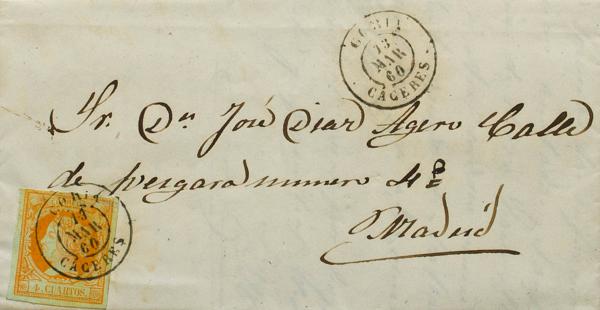 CORIA
13
MAR
60
CACERES
Sr. Dn José Diaz Agero Calle
de Vergara numero 4º
Madrid
CORIA
MAR
60
CACERES
4 CUARTOS.